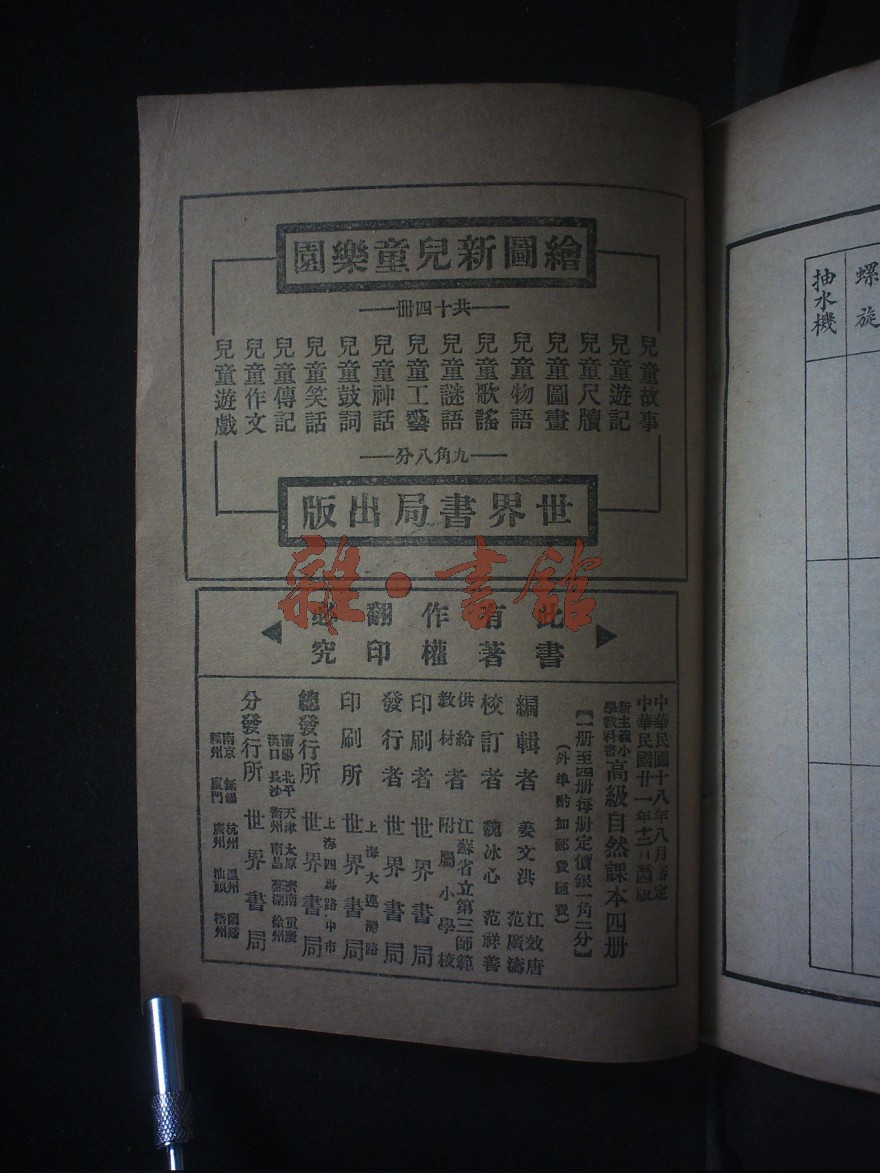 繪圖新兒童樂園
共十四冊
兒童故事
兒童遊記
兒童尺牘
兒童圖畫
兒童物語
兒童歌謠
兒童謎語
兒童工藝
兒童神話
兒童鼓詞
兒童笑話
兒童傳記
兒童作文
兒童遊戲
九角八分
世界書局出版
此書
有著
作權
翻印
必究
雜·書館
中華民國十八年八月
中華民國廿一年十二月
新主義小學教科書
高級自然課本四册
【一册至四册每册定價銀一角二分】
(外埠酌加郵費匯費)
編輯者 姜文洪 江效唐 范廣濤
校訂者 魏冰心 范祥善
供給教材者 江蘇省立第三師範附屬小學校
印刷者 世界書局
發行者 世界書局
印刷所 上海大連灣路 世界書局
總發行所 上海四馬路中市 世界書局
分發行所 世界書局
北平 天津 太原 濟南 重慶
漢口 長沙 衡州 南昌 蕪湖 徐州
南京 無錫 杭州 溫州
福州 廈門 廣州 汕頭 梧州
螺旋
抽水機